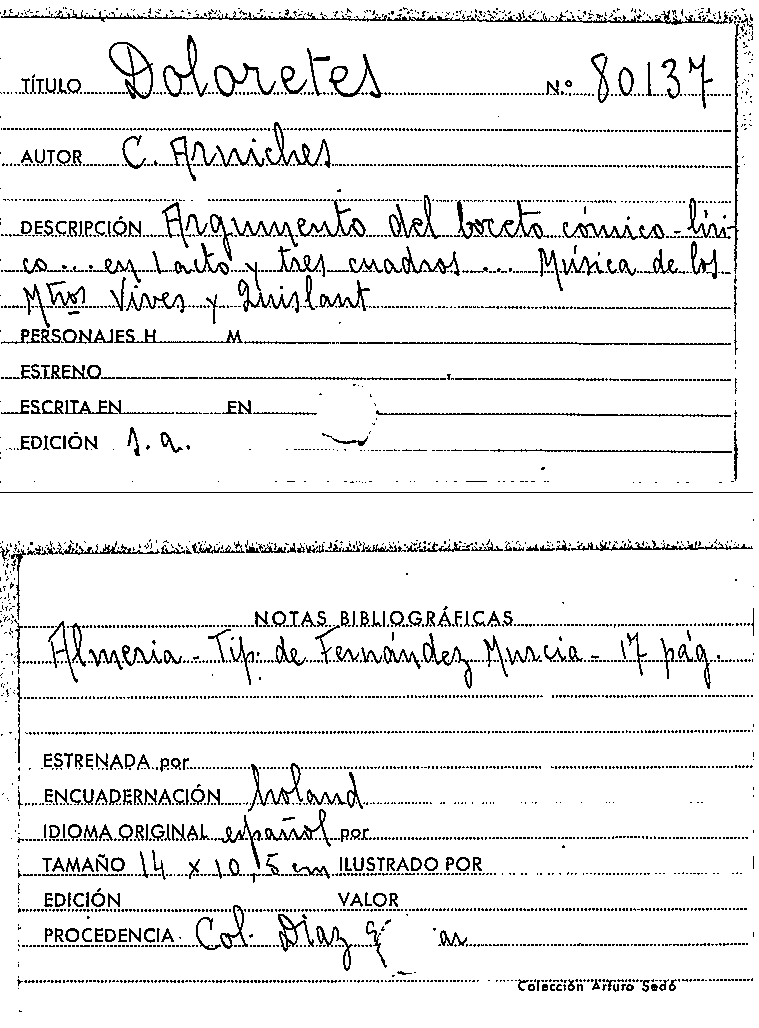 TÍTULO Doloretes N.º 80137
AUTOR C. Arniches
DESCRIPCIÓN Argumento del boceto cómico-líri-
co... en 1 acto y tres cuadros... Música de los
Mtros Vives y Quislant
PERSONAJES H M
ESTRENO
ESCRITA EN EN
EDICIÓN s.a.
NOTAS BIBLIOGRÁFICAS
Almeria - Tip. de Fernández Murcia - 17 pág.
ESTRENADA por
ENCUADERNACIÓN holand
IDIOMA ORIGINAL español por
TAMAÑO 14 x 10,5 cm ILUSTRADO POR
EDICIÓN VALOR
PROCEDENCIA Col. Díaz
Colección Arturo Sedó